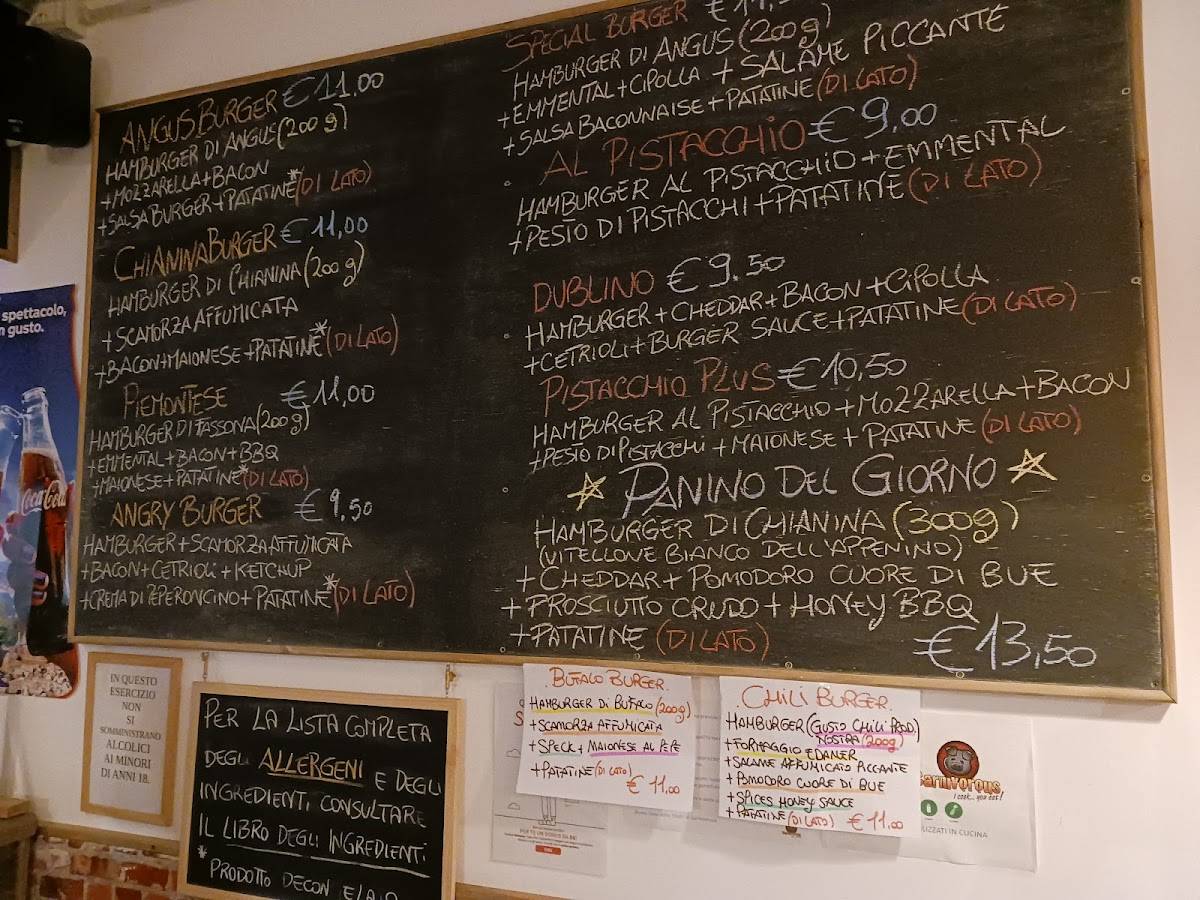 ANGUS BURGER € 11,00
HAMBURGER DI ANGUS (200 g)
+MOZZARELLA+BACON
+SALSA BURGER+PATATINE*(DI LATO)
CHIANINABURGER € 11,00
HAMBURGER DI CHIANINA (200 g)
+SCAMORZA AFFUMICATA
+BACON+MAIONESE+PATATINE*(DI LATO)
PIEMONTESE € 11,00
HAMBURGER DI FASSONA (200g)
+EMMENTAL+BACON+BBQ
+MAIONESE+PATATINE*(DI LATO)
ANGRY BURGER € 9,50
HAMBURGER+SCAMORZA AFFUMICATA
+BACON+CETRIOLI+KETCHUP
+CREMA DI PEPERONCINO+PATATINE*(DI LATO)
SPECIAL BURGER €
HAMBURGER DI ANGUS (200g)
+EMMENTAL+CIPOLLA+SALAME PICCANTE
+SALSA BACONNAISE+PATATINE (DI LATO)
AL PISTACCHIO € 9,00
HAMBURGER AL PISTACCHIO+EMMENTAL
+PESTO DI PISTACCHI+PATATINE (DI LATO)
DUBLINO € 9.50
HAMBURGER+CHEDDAR+BACON+CIPOLLA
+CETRIOLI+BURGER SAUCE+PATATINE (DI LATO)
PISTACCHIO PLUS € 10,50
HAMBURGER AL PISTACCHIO+MOZZARELLA+BACON
+PESTO DI PISTACCHI+MAIONESE+PATATINE (DI LATO)
PANINO DEL GIORNO
HAMBURGER DI CHIANINA (300g)
(VITELLONE BIANCO DELL'APPENINO)
+CHEDDAR+POMODORO CUORE DI BUE
+PROSCIUTTO CRUDO+HONEY BBQ
+PATATINE (DI LATO)
€ 13,50
spettacolo,
gusto.
Coca-Cola
IN QUESTO
ESERCIZIO
NON
SI
SOMMINISTRANO
ALCOLICI
AI MINORI
DI ANNI 18.
PER LA LISTA COMPLETA
DEGLI ALLERGENI E DEGLI
INGREDIENTI CONSULTARE
IL LIBRO DEGLI INGREDIENTI
* PRODOTTO DECON
BUFALO BURGER
HAMBURGER DI BUFALO (200g)
+SCAMORZA AFFUMICATA
+SPECK+MAIONESE AL PEPE
+PATATINE (DI LATO)
€ 11.00
CHILI BURGER
HAMBURGER (GUSTO CHILI PROD.
NOSTRA (200g)
+FORMAGGIO EDAMER
+SALAME AFFUMICATO PICCANTE
+POMODORO CUORE DI BUE
+SPICES HONEY SAUCE
+PATATINE (DI LATO) € 11,00
arnivorous
I cook... you eat!
LIZZATI IN CUCINA